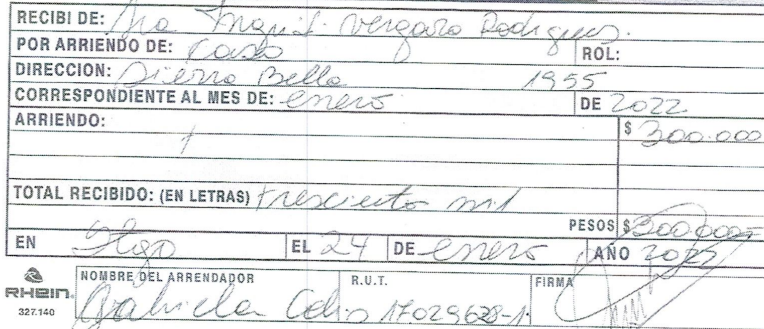 RECIBI DE: Sra Ingrid Vergara Rodriguez.
POR ARRIENDO DE: Casa ROL:
DIRECCION: Sierra Bella 1955
CORRESPONDIENTE AL MES DE: enero DE 2022
ARRIENDO: $ 300.000
TOTAL RECIBIDO: (EN LETRAS) tresciento mil
PESOS $ 300.000
EN Stgo EL 24 DE enero AÑO 2022
NOMBRE DEL ARRENDADOR R.U.T. FIRMA
RHEIN. Gabriela Celis 17.029.628-1
327.140